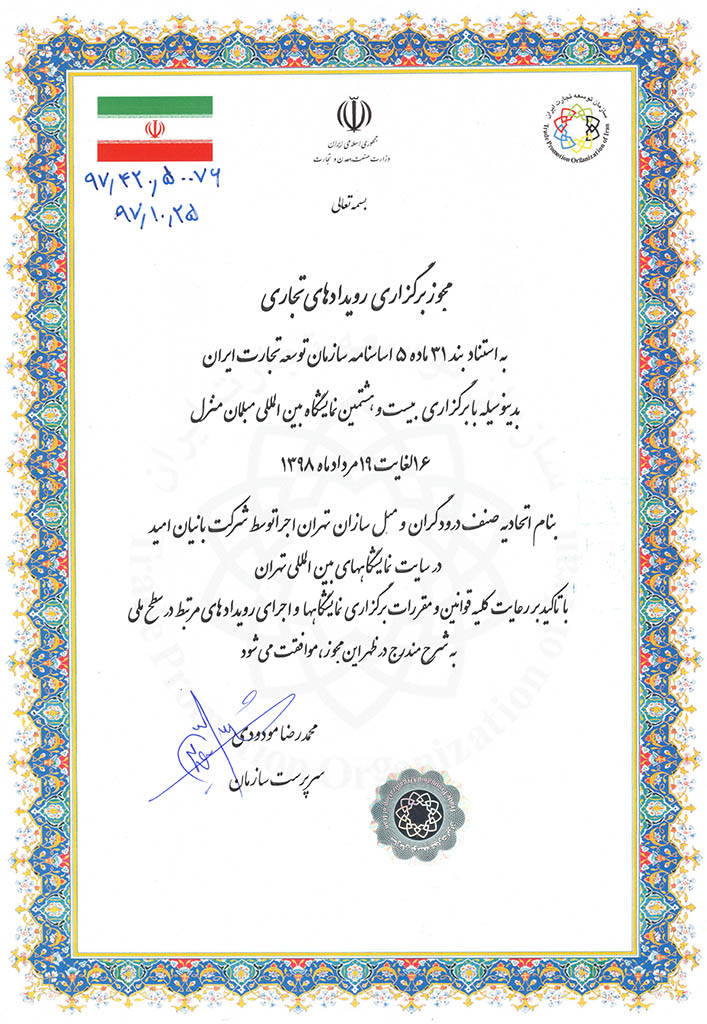 سازمان توسعه تجارت ایران
Trade Promotion Organization of Iran
جمهوری اسلامی ایران
وزارت صنعت، معدن و تجارت
۹۷٫۴۲۰٫۵۰۰۷۶
۹۷٫۱۰٫۲۵
بسمه تعالی
مجوز برگزاری رویدادهای تجاری
به استناد بند ۳۱ ماده ۵ اساسنامه سازمان توسعه تجارت ایران
بدینوسیله با برگزاری بیست و هشتمین نمایشگاه بین المللی مبلمان منزل
۱۶ لغایت ۱۹ مرداد ماه ۱۳۹۸
بنام اتحادیه صنف درودگران و مبل سازان تهران اجرا توسط شرکت بانیان امید
در سایت نمایشگاههای بین المللی تهران
با تاکید بر رعایت کلیه قوانین و مقررات برگزاری نمایشگاهها و اجرای رویدادهای مرتبط در سطح ملی
به شرح مندرج در ظهر این مجوز، موافقت می شود
محمدرضا مودودی
سرپرست سازمان